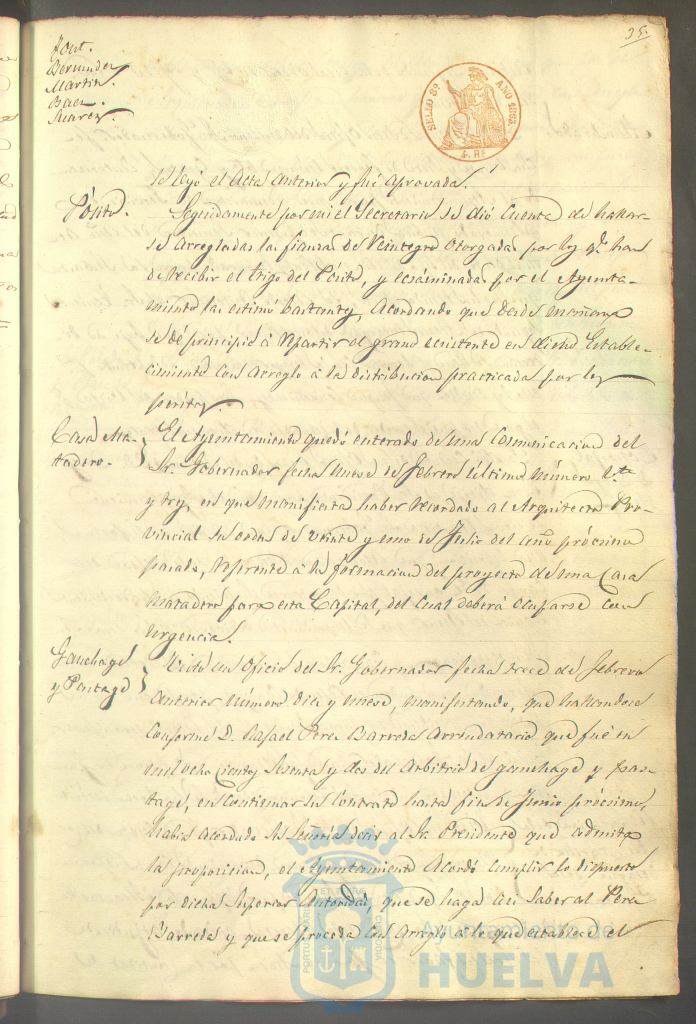 35.
Font.
Bermudez
Martin.
Baez.
Suarez.
SELLO 8º AÑO 1863.
4. Rs
Se leyó el Acta anterior y fué aprovada.
Pósito.
Seguidamente por mi el Secretario se dió cuenta de hallar-
se arregladas las fianzas de reintegro otorgadas por los qe. han
de recibir el trigo del Pósito, y ecsaminadas por el Ayunta-
miento las estimó bastantes, acordando que desde mañana
se dé principio á repartir el grano ecsistente en dicho Estable-
cimiento con arreglo á la distribucion practicada por los
peritos.
Casa Ma-
tadero.
El Ayuntamiento quedó enterado de una comunicacion del
Sr. Gobernador fecha nueve de Febrero último número
y tres, en que manifiesta haber recordado al Arquitecto Pro-
vincial su orden de veinte y uno de Julio del año prócsimo
pasado, referente á la formacion del proyecto de una Casa
Matadero para esta Capital, del cual deberá ocuparse con
urgencia.
Ganchage
y Pontage
Visto un oficio del Sr. Gobernador fecha trece de Febrero
anterior número diez y nueve, manifestando, que hallandose
conforme D. Rafael Perez Barreda arrendatario que fué en
mil ochocientos sesenta y dos del arbitrio de ganchage y pon-
tage, en continuar su contrato hasta fin de Junio prócsimo,
habia acordado Su Señoría decir al Sr. Presidente que admita
la proposicion, el Ayuntamiento acordó cumplir lo dispuesto
por dicha Superior Autoridad, que se haga asi saber al Perez
Barreda y que se proceda con arreglo á lo que establece el
Ayuntamiento de
HUELVA